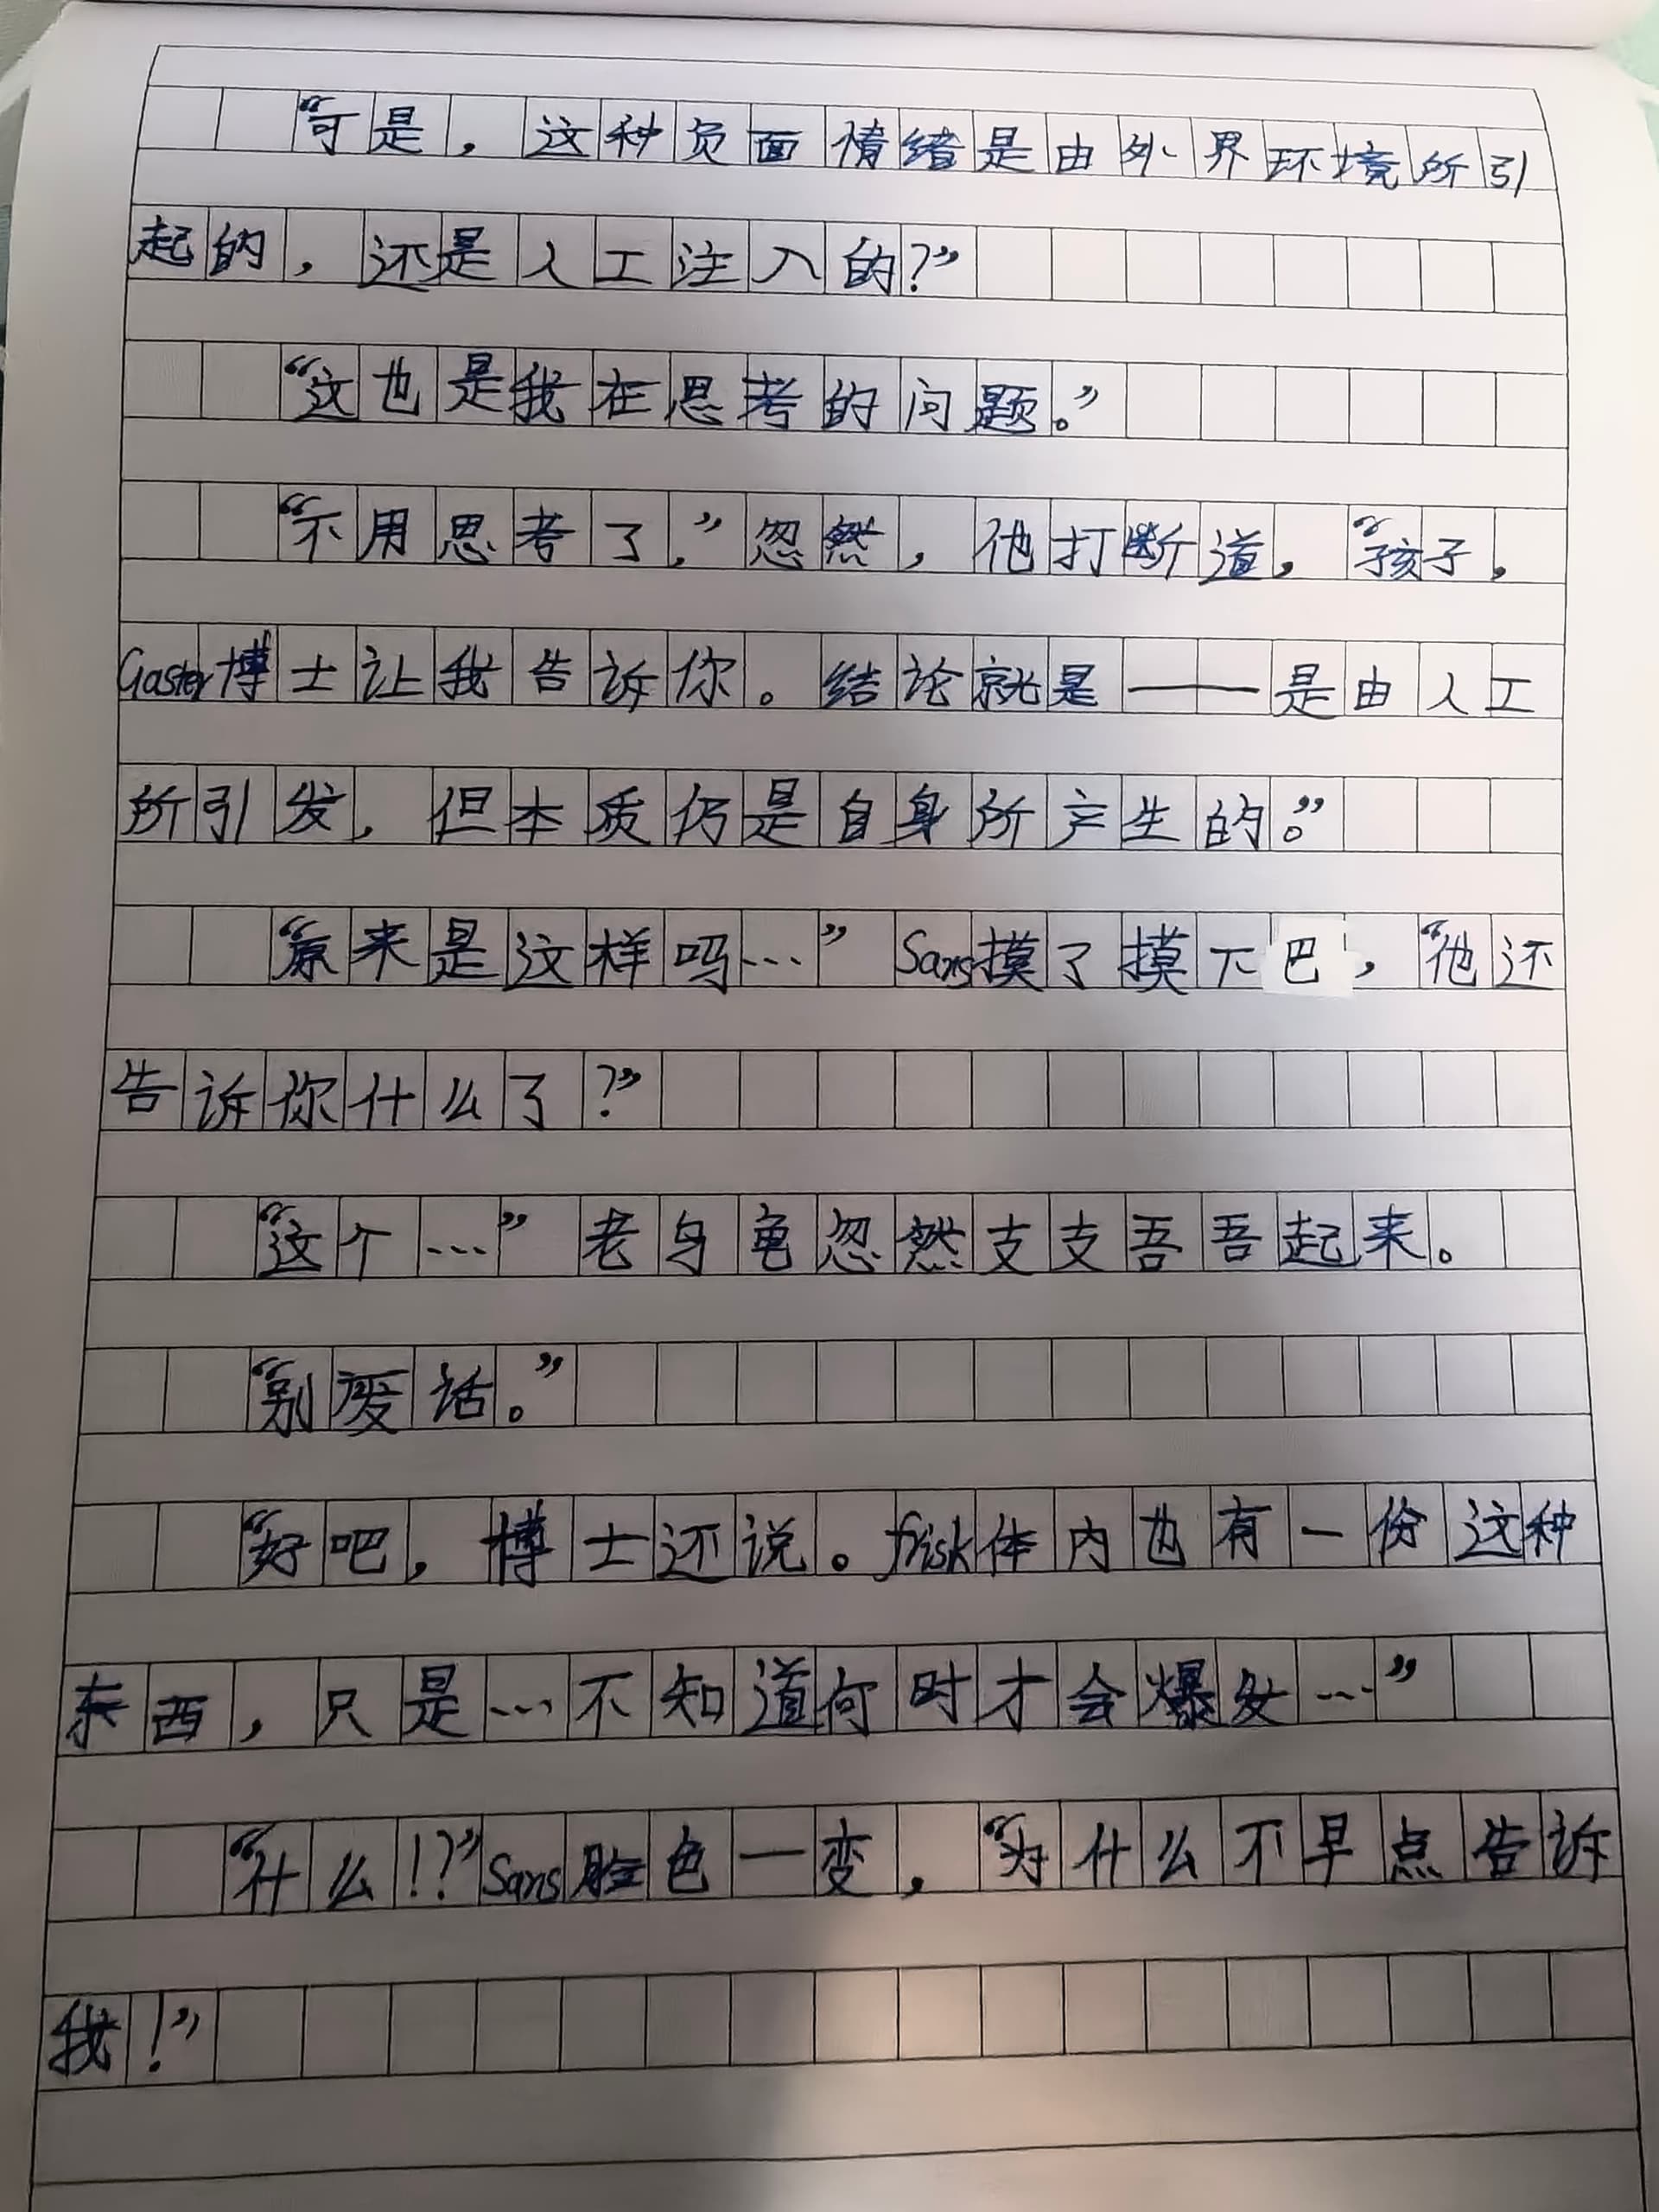 “可是，这种负面情绪是由外界环境所引
起的，还是人工注入的？”
“这也是我在思考的问题。”
“不用思考了，”忽然，他打断道，“孩子，
Gaster博士让我告诉你。结论就是——是由人工
所引发，但本质仍是自身所产生的。”
“原来是这样吗…”Sans摸了摸下巴，“他还
告诉你什么了？”
“这个…”老乌龟忽然支支吾吾起来。
“别废话。”
“好吧，博士还说。frisk体内也有一份这种
东西，只是…不知道何时才会爆发…”
“什么！？”Sans脸色一变，“为什么不早点告诉
我！”